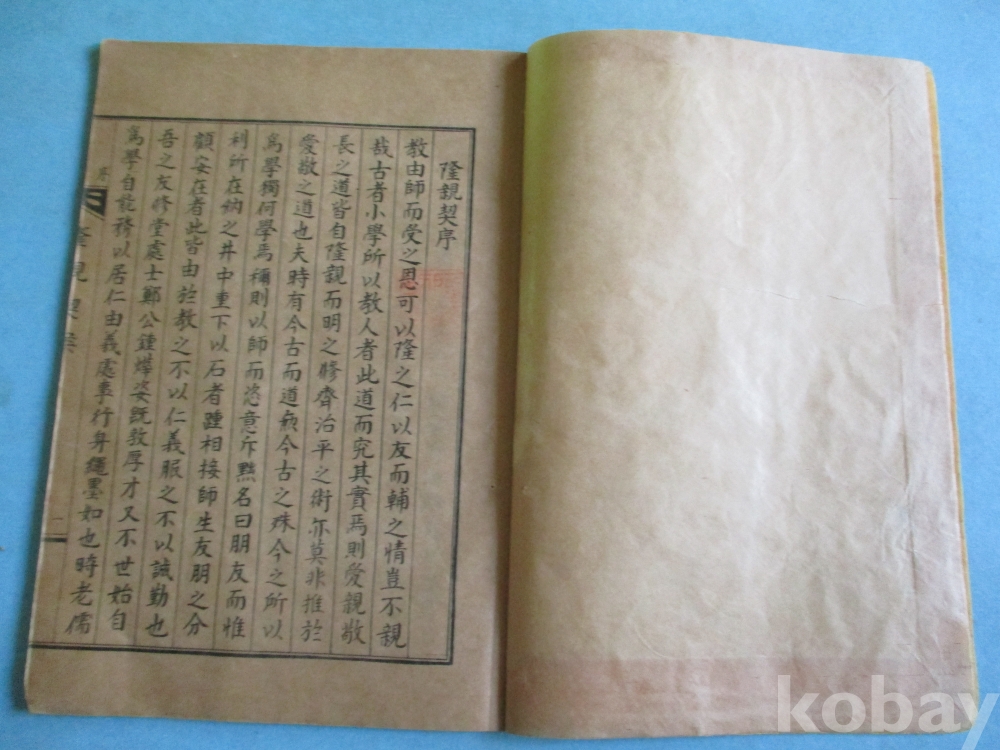 隆親契序
教由師而受之恩可以隆之仁以友而輔之情豈不親
哉古者小學所以教人者此道而究其實焉則愛親敬
長之道皆自隆親而明之脩齊治平之術亦莫非推於
愛敬之道也夫時有今古而道無今古之殊今之所以
爲學獨何學焉稱則以師而恣意斥黜名曰朋友而惟
利所在納之井中重下以石者踵相接師生友朋之分
顧安在者此皆由於教之不以仁義服之不以誠勤也
吾之友修堂處士鄭公鍾燁姿旣敦厚才又不世始自
爲學自能務以居仁由義處事行身繩墨如也時老儒
序
隆親契案
kobay